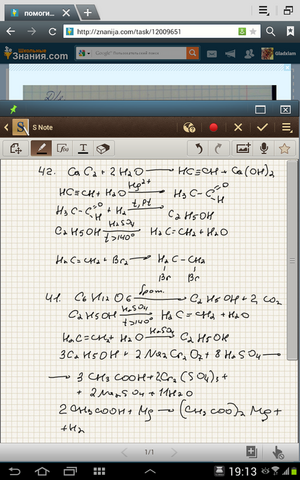 помоги...
http://znanija.com/task/12009651
Школьные
Знания.com
Google
vladxlam
S Note
42. CaC2 + 2H2O → HC≡CH + Ca(OH)2
HC≡CH + H2O Hg2+ → H3C-C=O H
H3C-C=O H + H2 t, Pt → C2H5OH
C2H5OH H2SO4 t>140° → H2C=CH2 + H2O
H2C=CH2 + Br2 → H2C-CH2
Br Br
41. C6H12O6 брож. → C2H5OH + 2CO2
C2H5OH H2SO4 t>140° → H2C=CH2 + H2O
H2C=CH2 + H2O H2SO4 → C2H5OH
3C2H5OH + 2Na2Cr2O7 + 8H2SO4 →
→ 3CH3COOH + 2Cr2(SO4)3 +
+ 2Na2SO4 + 11H2O
2CH3COOH + Mg → (CH3COO)2Mg +
+ H2
1/1
19:13